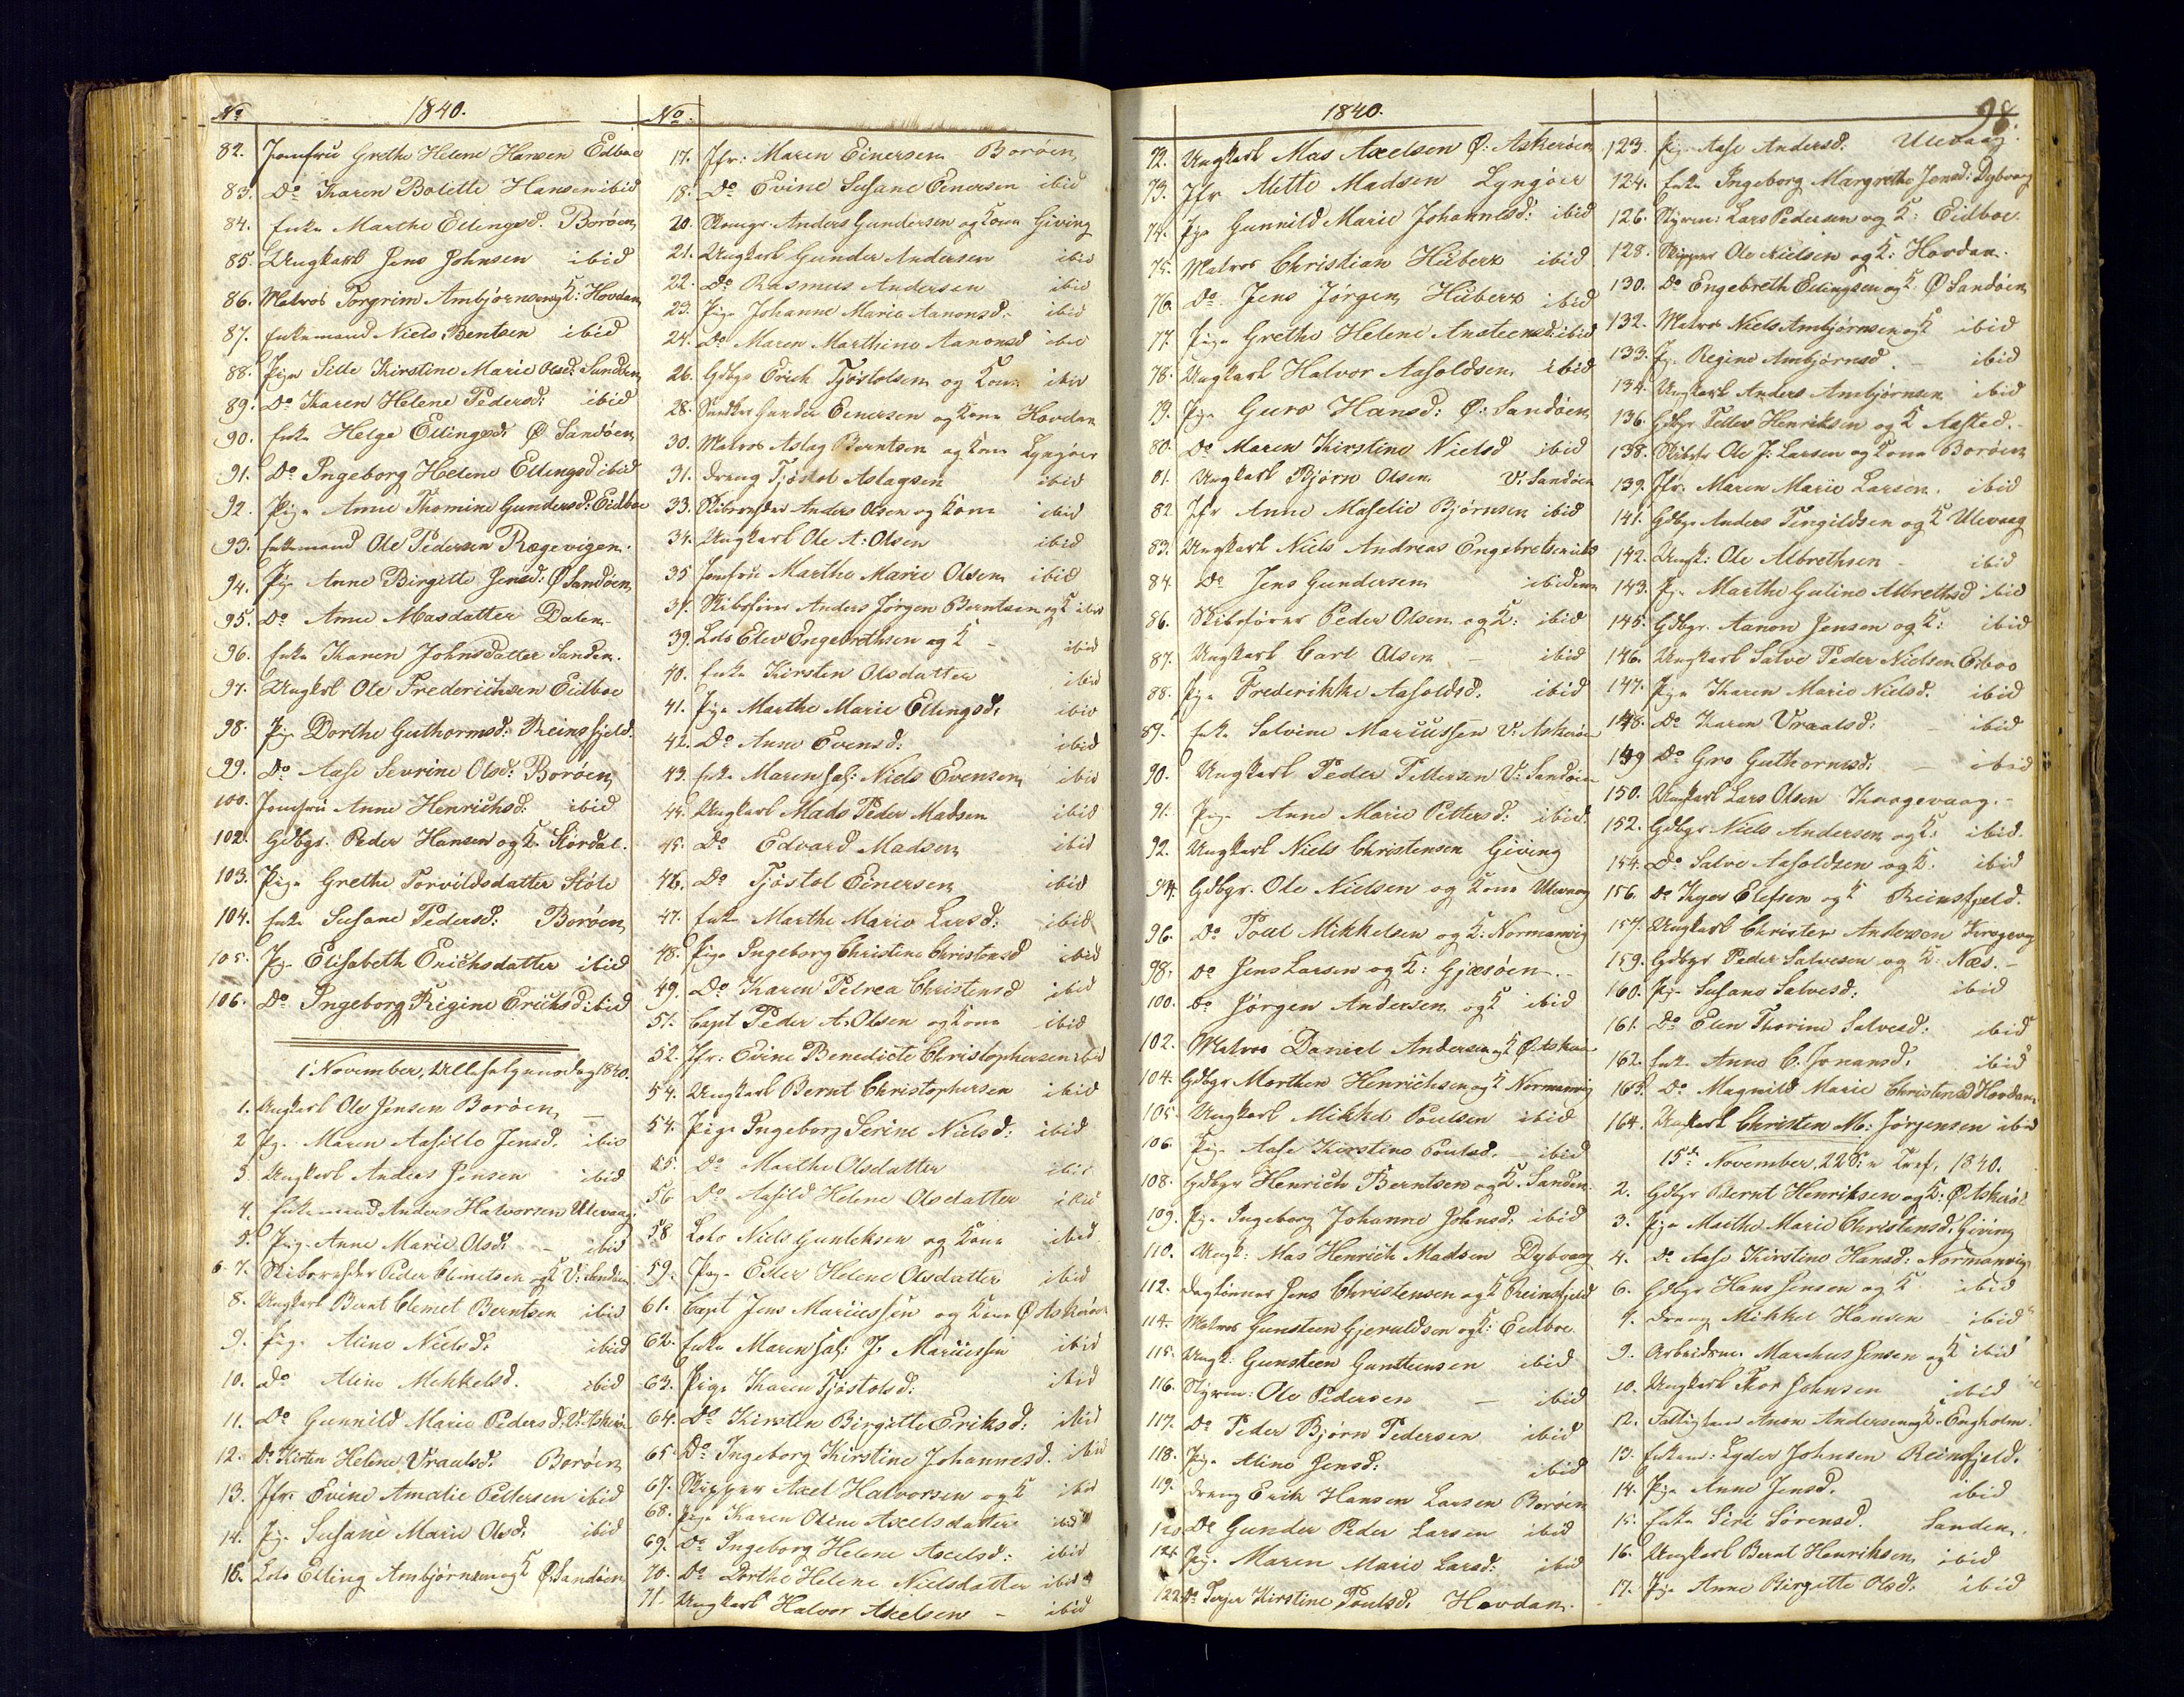 No 1840.
82. Jomfru Grethe Helene Hansen Eidboe
83. Do Karen Bolette Hansen ibid
84. Enke Marthe Ellingsd. Borøen
85. Ungkarl Jens Johnsen ibid
86. Matros Torgrim Ambjørnsen og K: Hovdan
87. Enkemand Niels Bentsen ibid
88. Pige Sille Kirstine Marie Olsd: Sanden
89. Do Karen Helene Pedersd: ibid
90. Enke Helge Ellingsd: Ø Sandøen
91. Do Ingeborg Helene Ellingsd ibid
92. Pige Anne Thomine Gundersd: Eidboe
93. Enkemand Ole Pedersen Rægevigen.
94. Pige Anne Birgitte Jensd: Ø Sandøen
95. Do Anne Masdatter Dalen
96. Enke Karen Johnsdatter Sanden.
97. Ungkrl Ole Frederichsen Eidboe
98. Pige Dorthe Guthormsd: Reinsfjeld.
99. Do Aase Sevrine Olsd: Borøen
100. Jomfru Anne Henrichsd: ibid
102. Gdbgr. Peder Hansen og K. Størdal.
103. Pige Grethe Torvildsdatter Støle
104. Enke Susane Pedersd: Borøen
105. Pg. Elisabeth Erichsdatter ibid
106. Do Ingeborg Regine Erichsd: ibid
1 November, Allehelgensdag 1840.
1. Ungkarl Ole Jensen Borøen
2 Pg. Maren Aasille Jensd. ibid
3. Ungkarl Anders Jensen ibid
4. Enkemand Anders Halvorsen Ulevaag
5. Pige Anne Marie Olsd: ibid
6-7. Skibsreder Peder Clemetsen og K V: Sandøen
8. Ungkarl Bernt Clemet Berntsen ibid
9. Pige Aline Nielsd: ibid
10. Do Aline Mikkelsd. ibid
11. Do Gunnild Marie Pedersd: V: Askerøen
12. Do Kirsten Helene Vraalsd: Borøen
13. Jfr: Evine Amalie Pettersen ibid
14. Pige Susane Marie Olsd. ibid
16. Lods Elling Ambjørnsen og K Ø Sandøen
No.
17. Jfr: Maren Einersen Borøen
18. Do Evine Susane Einersen ibid
20. Anders Gundersen og Kone Giving
21. Ungkarl Gunder Andersen ibid
22. Do Rasmus Andersen ibid
23. Pige Johanne Marie Aanonsd: ibid
24. Do Maren Marthine Aanonsd ibid
26. Gdbgr Erich Tjøstolsen og Kone ibid
28. Gunder Einersen og Kone Hovdan
30. Matros Aslag Berntsen og Kone Lyngøer
31. Dreng Tjøstol Aslagsen ibid
33. Skibsreder Anders Olsen og Kone ibid
34. Ungkarl Ole A: Olsen ibid
35 Jomfru Marthe Marie Olsen ibid
37. Skibsfører Anders Jørgen Berntsen og K ibid
39. Lods Elev Engebrethsen og K ibid
40. Enke Kirsten Olsdatter ibid
41. Pige Marthe Marie Ellingsd: ibid
42. Do Anne Evensd: ibid
43. Enke Maren sal: Niels Evensen ibid
44. Ungkarl Mads Peder Madsen ibid
45. Do Edvard Madsen ibid
46. Do Tjøstol Einersen ibid
47. Enke Marthe Marie Larsd: ibid
48. Pige Ingeborg Christine Christensd ibid
49. Do Karen Petrea Christensd ibid
51. Capt Peder A: Olsen og Kone ibid
52. Jfr: Evine Benedicte Christophersen ibid
54. Ungkarl Bernt Christophersen ibid
54. Pige Ingeborg Serine Nielsd: ibid
55. Do Marthe Olsdatter ibid
56 Do Aasild Helene Olsdatter ibid
58 Lods Niels Gunleksen og Kone ibid
59. Pige Eder Helene Olsdatter ibid
61. Capt Jens Mariussen og Kone Ø Askerøen
62. Enke Maren sal: J. Mariussen ibid
63. Pige Karen Tjøstolsd: ibid
64. Do Kirsten Birgitte Eriksd: ibid
65 Do Ingeborg Kirstine Johannesd. ibid
67. Skipper Axel Halvorsen og K ibid
68. Pige Karen Oline Axelsdatter ibid
69. Do Ingeborg Helene Axelsd: ibid
70. Do Dorthe Helene Nielsdatter ibid
71. Ungkarl Halvor Axelsen ibid
1840.
72. Ungkarl Mas Axelsen Ø: Askerøen
73. Jfr Mette Madsen Lyngøer
74. Pige Gunnild Marie Johannesd: ibid
75. Matros Christian Hüberx ibid
76. Do Jens Jørgen Hüberx ibid
77. Pige Grethe Helene Ansteensd: ibid
78. Ungkarl Halvor Aasoldsen ibid
79. Pige Guro Hansd: Ø: Sandøen
80. Do Maren Kirstine Nielsd ibid
81. Ungkarl Bjørn Olsen V: Sandøen
82. Jfr Anne Maselie Bjørnsen ibid
83. Ungkarl Niels Andreas Engebretsen ibid
84. Do Jens Gundersen ibidem
86. Skibsfører Peder Olsen og K: ibid
87. Ungkarl Carl Olsen ibid
88. Pige Frederikke Aasoldsd. ibid
89. Enke Salvine Mariussen V: Askerøen
90. Ungkarl Peder Pettersen V: Sandøen
91. Pige Anne Marie Pettersd: ibid.
92. Ungkarl Niels Christensen Giving
94. Gdbgr. Ole Nielsen og Kone Ulevaag
96. Do Poul Mikkelsen og K: Normanvig
98. Do Jens Larsen og K: Gjæsøen.
100. Do Jørgen Andersen og K ibid
102. Matros Daniel Andersen og K Ø Askerøen
104. Gdbgr Morthen Henrichsen og K Normanvig
105. Ungkarl Mikkel Poulsen ibid
106. Pige Aase Kirstine Poulsd. ibid
108. Gdbgr Henrich Berntsen og K. Sanden
109. Pige Ingeborg Johanne Johnsd: ibid
110. Ungk: Mas Henrich Madsen Dybvaag
112. Daglønner Jens Christensen og K Reinsfjeld
114. Matros Gunsteen Gjeruldsen og K: Eidboe
115. Ungk: Gunsteen Gunsteensen ibid
116. Styrm: Ole Pedersen ibid
117. Do Peder Bjørn Pedersen ibid
118. Pige Aline Jensd: ibid
119. Dreng Erik Hansen Larsen Borøen
120 Do Gunder Peder Larsen ibid
121. Pige Maren Marie Larsd: ibid
122. Do Terjer Kirstine Poulsd. Hovdan.
98.
123. Pige Aase Andersd. Ulevaag.
124. Enke Ingeborg Margrethe Jensd: Dybvaag
126. Styrm: Lars Pedersen og K: Eidboe
128. Skipper Ole Nielsen og K: Hovdan.
130. Do Engebreth Ellingsen og K. Ø Sandøen
132. Matros Niels Ambjørnsen og K ibid
133. Pg. Regine Ambjørnsd. ibid
134. Ungkarl Anders Ambjørnsen ibid
136. Gdbgr Tellev Henriksen og K Aasted.
138. Skibsfr Ole J: Larsen og Kone Borøen
139. Jfr. Maren Marie Larsen. ibid
141. Gdbgr Anders Tengildsen og K Ulevaag
142. Ungk: Ole Albrethsen ibid
143. Pg. Marthe Guline Albrethsd ibid
145. Gdbgr. Aanon Jensen og K: ibid
146. Ungkarl Salve Peder Nielsen Eeboe
147. Pige Karen Marie Nielsd. ibid
148. Do Karen Vraalsd: ibid
149 Do Gro Guthormsd: ibid
150. Ungkarl Lars Olsen Kragevaag.
152. Gdbgr Niels Andersen og K: ibid.
154. Do Salve Aasoldsen og K. ibid
156. Do Elefsen og K Reinsfjeld.
157. Ungkarl Christen Andersen Kragevaag
159. Gdbgr Peder Salvesen og K: Næs.
160. Pige Susane Salvesd: ibid
161. Do Elen Thorine Salvesd: ibid
162. Enke Anne C. Jonansd. ibid
163. Do Magnild Marie Christensd Hovdan
164. Ungkarl Christen M: Jørgensen ibid
15de November, 22 S: e Tref. 1840.
2. Gdbgr Bernt Henriksen og K: Ø Askerø
3. Pige Marthe Marie Christensd. Giving
4. Do Aase Kirstine Hansd: Normanvig
6. Gdbgr Hans Jensen og K ibid
7. Dreng Mikkel Hansen ibid
9. Arbeidsm. Marchus Jensen og K ibid
10. Ungkarl Thor Johnsen ibid
12. Fattiglem Anon Andersen og K. Engholm
13. Enkem: Lyder Johnsen Reinsfjeld.
14. Pige Anne Jensd. ibid
15. Enke Siri Sørensd. Sanden.
16. Ungkarl Bernt Henriksen ibid
17. Pige Anne Birgitte Olsd. ibid